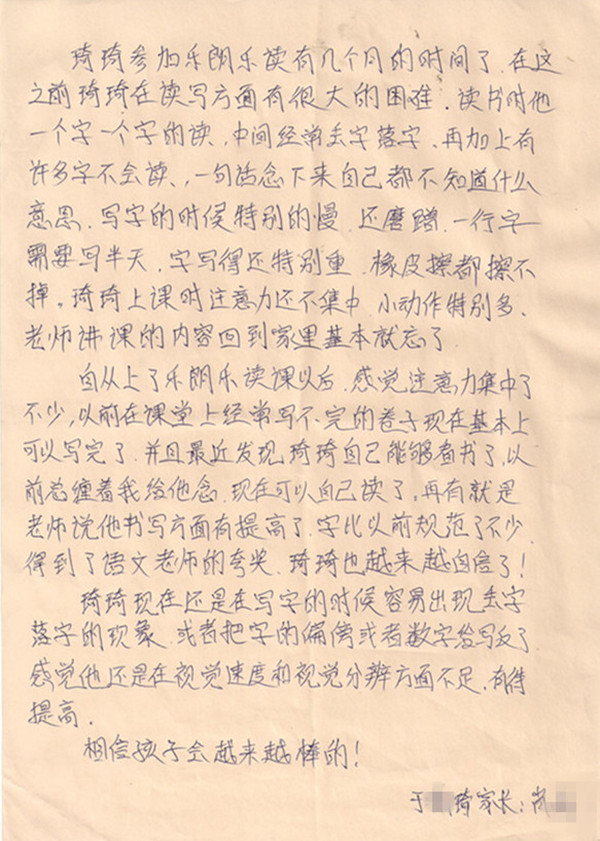 琦琦参加乐朗乐读有几个月的时间了.在这
之前琦琦在读写方面有很大的困难.读书时他
一个字一个字的读、中间经常丢字落字、再加上有
许多字不会读、,一句话念下来自己都不知道什么
意思.写字的时候特别的慢.还磨蹭.一行字
需要写半天,字写得还特别重.橡皮擦都擦不
掉。琦琦上课时注意力还不集中 小动作特别多、
老师讲课的内容回到家里基本就忘了.
自从上了乐朗乐读课以后.感觉注意力集中了
不少,以前在课堂上经常写不完的卷子现在基本上
可以写完了.并且最近发现琦琦自己能够看书了,以
前总缠着我给他念.现在可以自己读了,再有就是
老师说他书写方面有提高了.字比以前规范了不少.
得到了语文老师的夸奖.琦琦也越来越自信了!
琦琦现在还是在写字的时候容易出现丢字
落字的现象.或者把字的偏傍或者数字给写反了
感觉他还是在视觉速度和视觉分辨方面不足.有待
提高.
相信孩子会越来越棒的!
于琦家长:尚